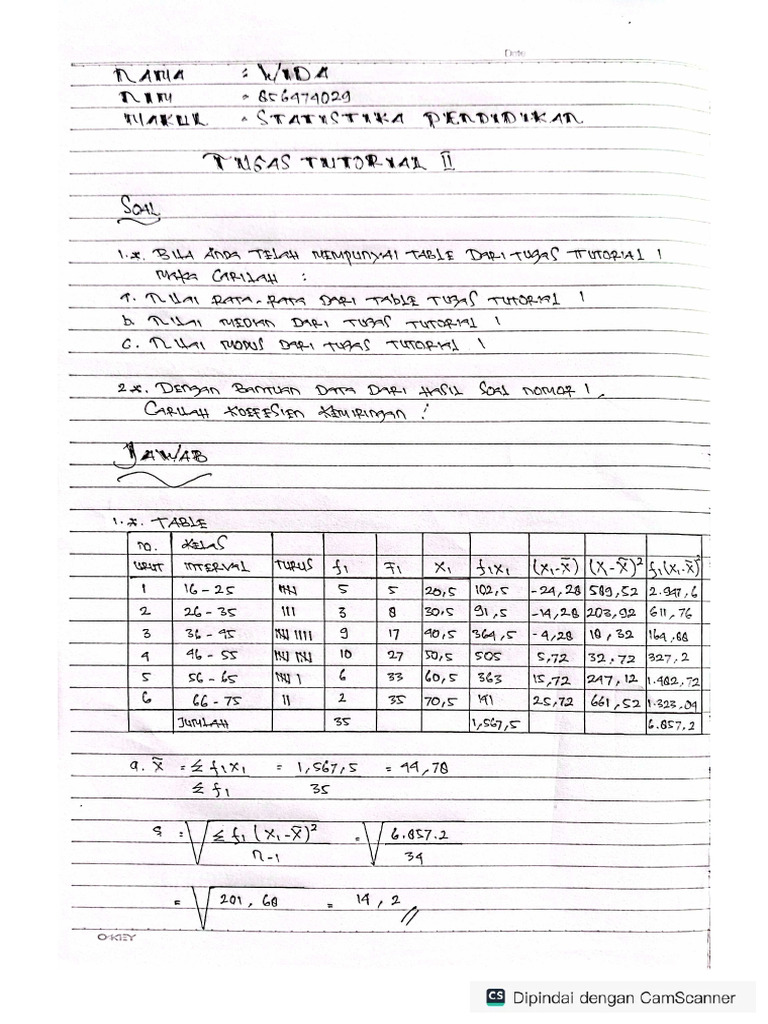 Date
NAMA : WIDA
NIM : 856474029
MAKUL : STATISTIKA PENDIDIKAN
TUGAS TUTORIAL II
SOAL
1.*. BILA ANDA TELAH MEMPUNYAI TABLE DARI TUGAS TUTORIAL 1
MAKA CARILAH :
a. NILAI RATA-RATA DARI TABLE TUGAS TUTORIAL 1
b. NILAI MEDIAN DARI TUGAS TUTORIAL 1
c. NILAI MODUS DARI TUGAS TUTORIAL 1
2.*. DENGAN BANTUAN DATA DARI HASIL SOAL NOMOR 1,
CARILAH KOEFESIEN KEMIRINGAN !
JAWAB
1.*. TABLE
NO. URUT KELAS INTERVAL TURUS f1 F1 X1 f1X1 (X1-X̄) (X1-X̄)² f1(X1-X̄)²
1 16-25 5 5 20,5 102,5 -24,28 589,52 2.947,6
2 26-35 III 3 8 30,5 91,5 -14,28 203,92 611,76
3 36-45 9 17 40,5 364,5 -4,28 18,32 164,88
4 46-55 10 27 50,5 505 5,72 32,72 327,2
5 56-65 6 33 60,5 363 15,72 247,12 1.482,72
6 66-75 II 2 35 70,5 141 25,72 661,52 1.323,04
JUMLAH 35 1,567,5 6.857,2
a. X̄ = Σ f1X1 / Σ f1 = 1,567,5 / 35 = 44,78
S = √ Σ f1(X1-X̄)² / n-1 = √ 6.857.2 / 34
= √ 201,68 = 14,2 //
O-KEY
CS Dipindai dengan CamScanner